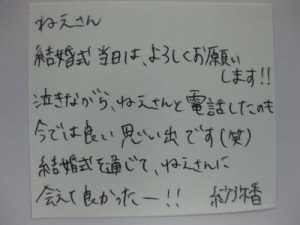 ねえさん
結婚式当日は、よろしくお願い
します!!
泣きながら、ねえさんと電話したのも
今では良い思い出です(笑)
結婚式を通じて、ねえさんに
会えて良かったー!! 紗弥香